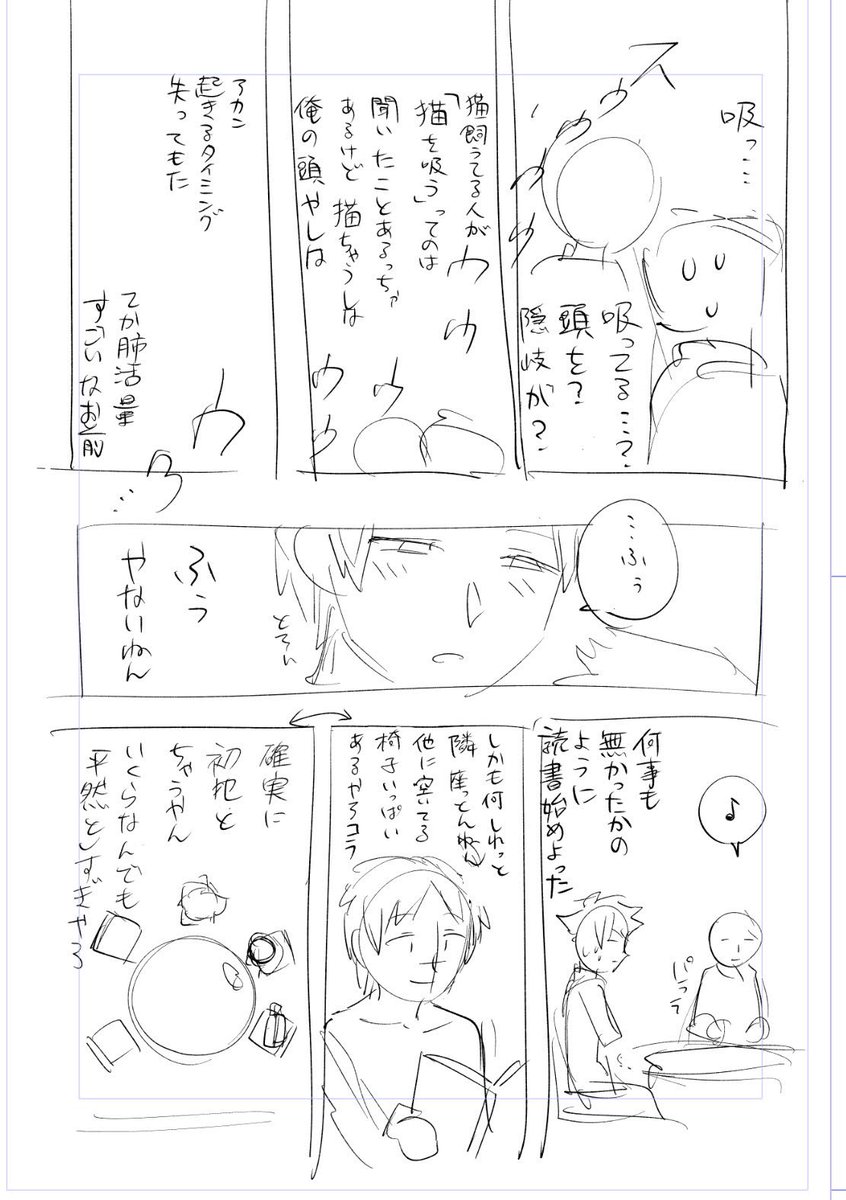 吸っ…
スゥゥゥゥ
吸ってる…?
頭を?
隠岐が?
猫飼うてる人が
「猫を吸う」ってのは
聞いたことあるっちゃ
あるけど 猫ちゃうしな
俺の頭やしな
ゥ
ゥ
ゥ
ゥ
ゥ
アカン
起きるタイミング
失ってもた
てか肺活量
すごいなお前
ゥ
ゥ
…
…ふぅ
ふぅ
やないねん
何事も
無かったかの
ように
読書始めよった
♪
しかも何しれっと
隣座っとんねん
他に空いてる
椅子いっぱい
あるやろコラ
確実に
初犯と
ちゃうやん
いくらなんでも
平然としすぎやろ